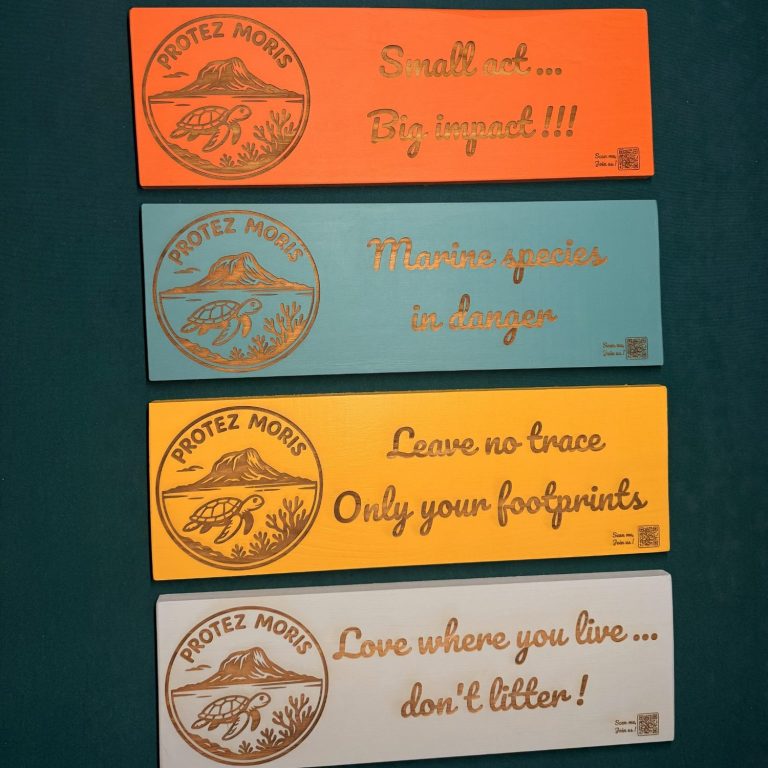 PROTEZ MORIS
Small act ...
Big impact !!!
Scan me,
Join us !
PROTEZ MORIS
Marine species
in danger
Scan me,
Join us !
PROTEZ MORIS
Leave no trace
Only your footprints
Scan me,
Join us !
PROTEZ MORIS
Love where you live ...
don't litter !
Scan me,
Join us !